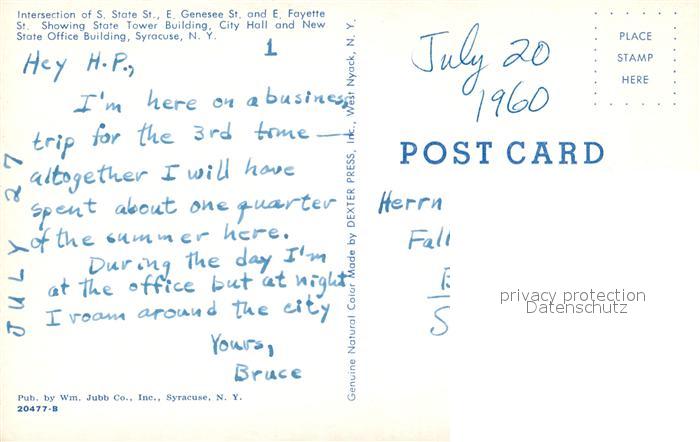 Intersection of S. State St., E. Genesee St. and E. Fayette
St. Showing State Tower Building, City Hall and New
State Office Building, Syracuse, N. Y.
1
Hey H.P.,
I'm here on a business
trip for the 3rd time —
altogether I will have
spent about one quarter
of the summer here.
During the day I'm
at the office but at night
I roam around the city
Yours,
Bruce
JULY 27
Pub. by Wm. Jubb Co., Inc., Syracuse, N. Y.
20477-B
Genuine Natural Color Made by DEXTER PRESS, Inc., West Nyack, N. Y.
July 20
1960
PLACE
STAMP
HERE
POST CARD
Herrn
Fall
S
privacy protection
Datenschutz